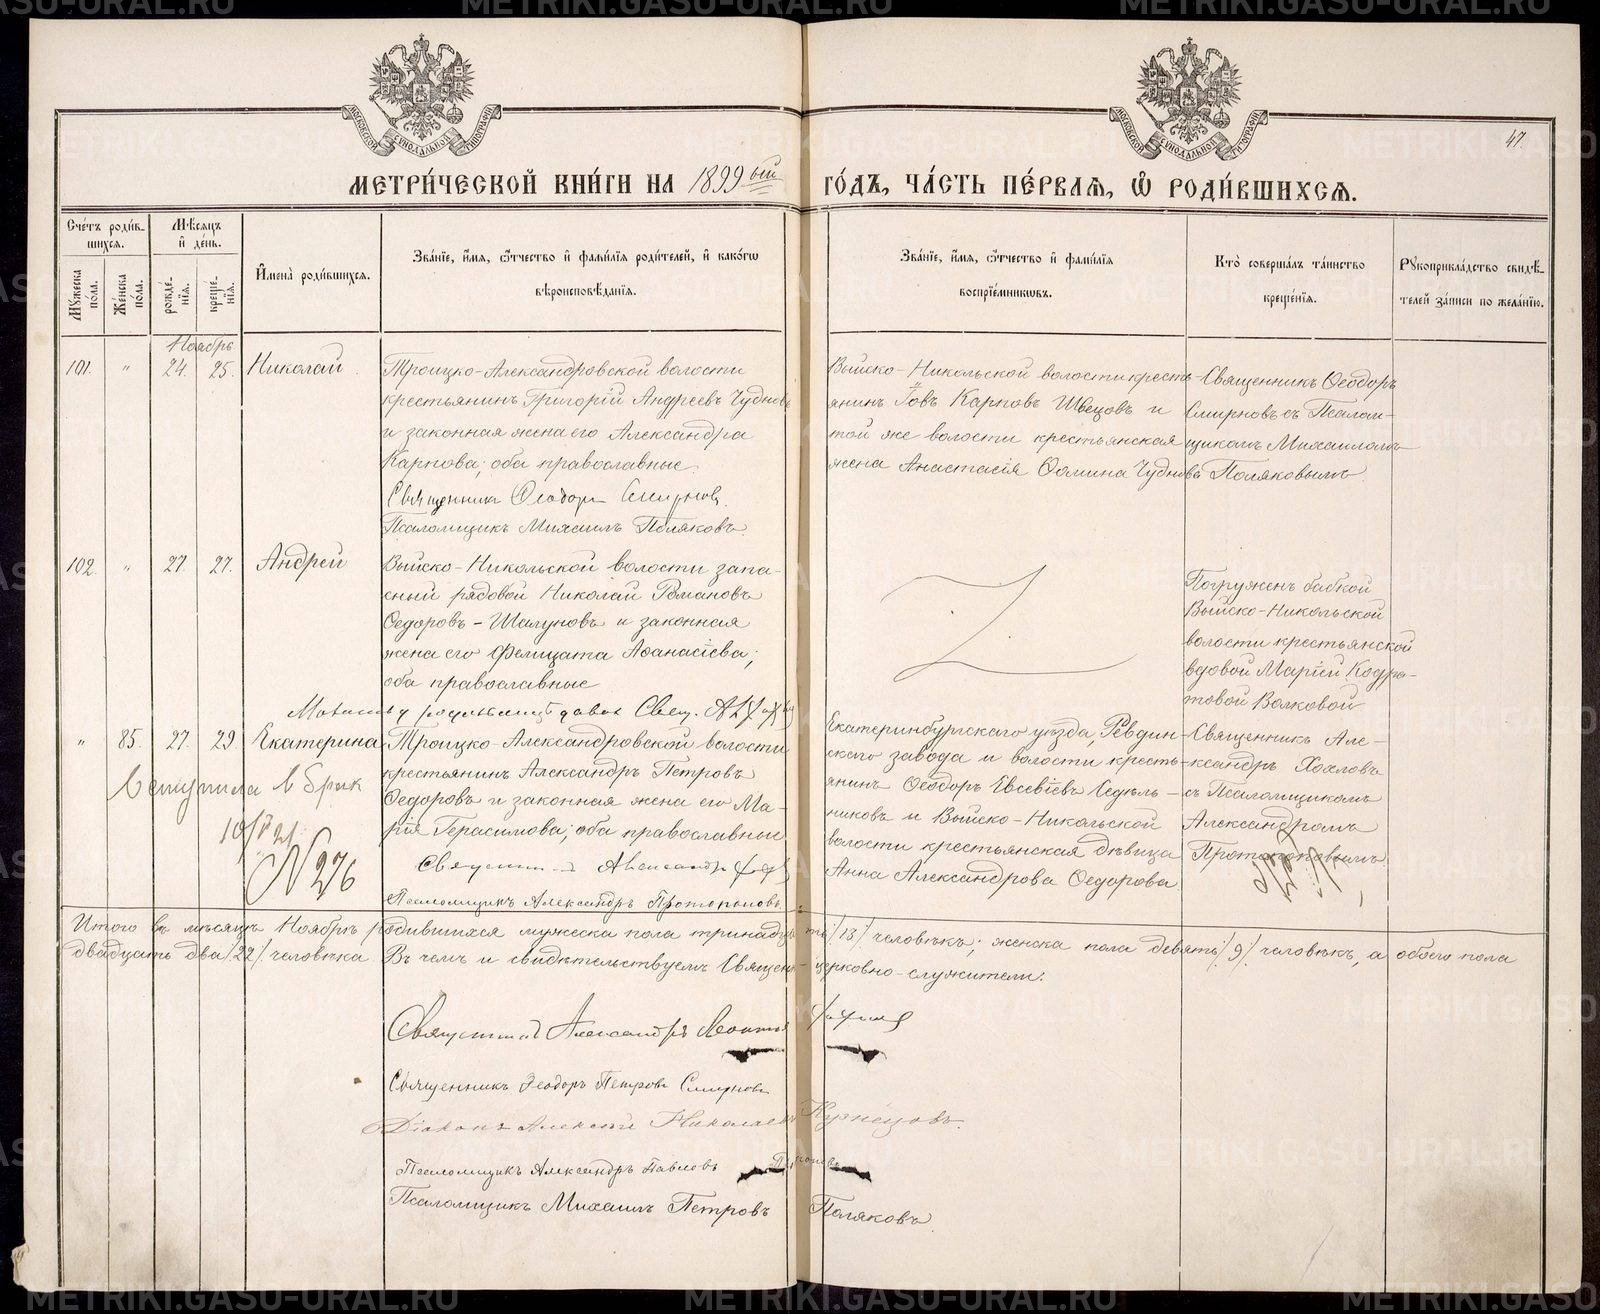 METRIKI.GASU-URAL.RU
МОСКОВСКОЙ СѴНОДАЛЬНОЙ ТИПОГРАФІИ
МОСКОВСКОЙ СѴНОДАЛЬНОЙ ТИПОГРАФІИ
47
МЕТРИ́ЧЕСКОЙ КНИ́ГИ НА 1899ый ГО́ДЪ, ЧА́СТЬ ПЕ́РВАѦ, Ѽ РОДИ́ВШИХСѦ.
Сче́тъ роди́вшихся.
Мѣ́сяцъ и҆ де́нь.
Мꙋ́жеска по́ла.
Же́нска по́ла.
рожде́нїя.
креще́нїя.
И҆мена̀ роди́вшихся.
Зва́нїе, и҆́мя, ѻ҆́тчество и҆ фамилїя роди́телей, и҆ како́гѡ вѣроисповѣ́данїя.
Зва́нїе, и҆́мя, ѻ҆́тчество и҆ фами́лїя воспрїе́мникѡвъ.
Кто̀ соверша́лъ та́инство креще́нїя.
Рꙋкоприкла́дство свидѣ́телей за́писи по жела́нїю.
Ноябрь
101. " 24. 25. Николай
Троицко-Александровской волости
крестьянинъ Григорій Андреевъ Чудновъ
и законная жена его Александра
Карпова; оба православные.
Священникъ Ѳеодоръ Смирнов.
Псаломщикъ Михаилъ Поляковъ.
Выйско-Никольской волости кресть-
янинъ Іовъ Карповъ Швецовъ и
той же волости крестьянская
жена Анастасія Ѳомина Чуднова
Священникъ Ѳеодоръ
Смирновъ съ Псалом-
щикомъ Михаиломъ
Поляковымъ.
102. " 27. 27. Андрей
Выйско-Никольской волости запа-
сный рядовой Николай Романовъ
Ѳедоровъ-Шалуновъ и законная
жена его Фелицата Аѳанасіева;
оба православные
Погруженъ бабкой
Выйско-Никольской
волости крестьянской
вдовой Маріей Кодра-
товой Волковой
" 85. 27. 29. Екатерина
Троицко-Александровской волости
крестьянинъ Александръ Петровъ
Ѳедоровъ и законная жена его Ма-
рія Герасимова; оба православные
Александръ
Псаломщикъ Александръ Протопоповъ.
Вступила в брак
N 276
Екатеринбургскаго уѣзда, Ревдин-
скаго завода и волости кресть-
янинъ Ѳеодоръ Евсевіевъ Седель-
никовъ и Выйско-Никольской
волости крестьянская дѣвица
Анна Александрова Ѳедорова
Священникъ Але-
ксандръ Хохловъ
съ Псаломщикомъ
Александромъ
Протопоповымъ.
Итого въ мѣсяцѣ Ноябрѣ родившихся мужеска пола тринадцать /13/ человѣкъ; женска пола девять /9/ человѣкъ, а обоего пола
двадцать два /22/ человѣка Въ чемъ и свидѣтельствуемъ Священно-церковно-служители:
Священникъ Александръ Леонтьев
Священникъ Ѳеодоръ Петровъ Смирновъ
Діаконъ Алексѣй Николаевъ Кузнецовъ.
Псаломщикъ Александръ Павловъ
Псаломщикъ Михаилъ Петровъ Поляковъ.
METRIKI.GASU-URAL.RU